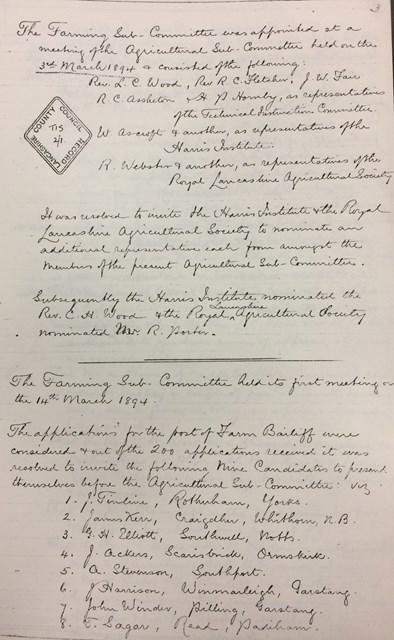 3
The Farming Sub-Committee was appointed at a
meeting of the Agricultural Sub-Committee held on the
3rd March 1894 & consisted of the following:
Rev. L. C. Wood, Rev R. C. Fletcher, J. W. Fair
R. C. Assheton & H. P. Hornby, as representatives
of the Technical Instruction Committee.
W Ascroft & another, as representatives of the
Harris Institute.
R. Webster & another, as representatives of the
Royal Lancashire Agricultural Society
LANCASHIRE COUNTY COUNCIL RECORD
TIS
2/1
It was resolved to invite the Harris Institute & the Royal
Lancashire Agricultural Society to nominate an
additional representative each from amongst the
Members of the present Agricultural Sub-Committee.
Subsequently the Harris Institute nominated the
Rev. C. H. Wood & the Royal Lancashire Agricultural Society
nominated Mr. R. Porter.
The Farming Sub-Committee held its first meeting on
the 14th March 1894.
The applications for the post of Farm Bailiff were
considered & out of the 200 applications received it was
resolved to invite the following Nine Candidates to present
themselves before the Agricultural Sub-Committee: viz
1. J. Tinline, Rotherham, Yorks.
2. James Kerr, Craigdhu, Whithorn, N.B.
3. G. H. Elliott, Southwell, Notts.
4. J. Ackers, Scarisbrick, Ormskirk.
5. A. Stevenson, Southport.
6. J Harrison, Winmarleigh, Garstang.
7. John Winder, Pilling, Garstang.
8. T. Sagar, Read, Padiham.